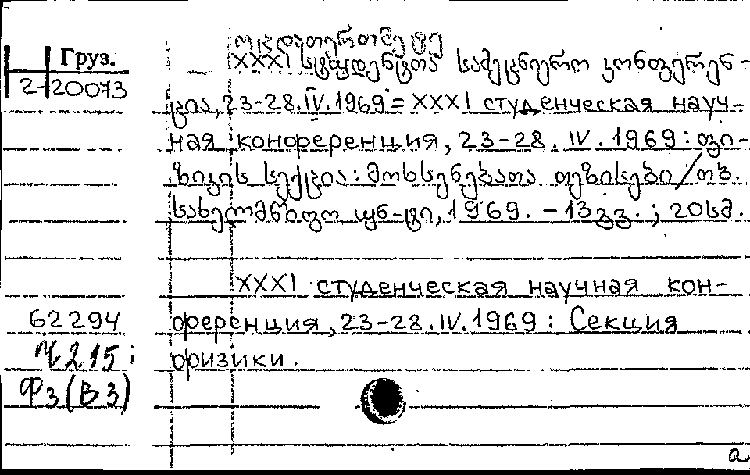 ოცდათერთმეტე
Груз.
XXXI სტუდენტთა სამეცნიერო კონფერენ-
2-20073
ცია, 23-28.IV.1969 = XXXI студенческая науч-
ная конференция, 23-28. IV. 1969 : ფი-
ზიკის სექცია : მოხსენებათა თეზისები / თბ.
სახელმწიფო უნ-ტი, 1969. - 13 გვ. ; 20 სმ.
XXXI студенческая научная кон-
62294
ференция, 23-28.IV.1969 : Секция
Ч215 :
физики.
Ф3(В3)
а